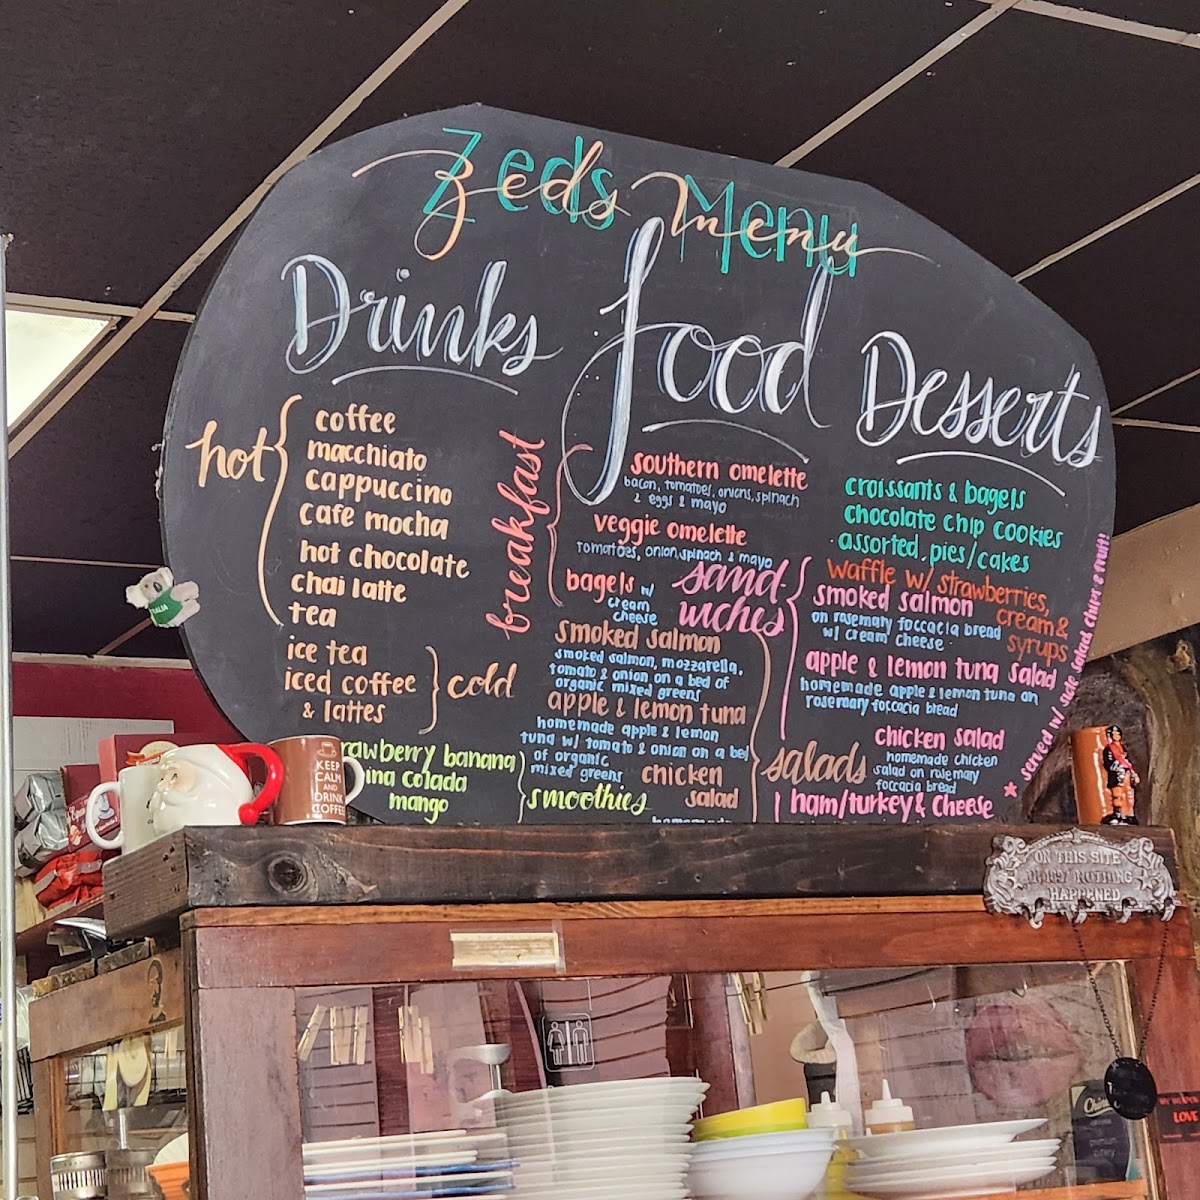 Zeds Menu
zeds menu
Drinks
hot
coffee
macchiato
cappuccino
cafe mocha
hot chocolate
chai latte
tea
ice tea
iced coffee
& lattes
cold
banana
colada
mango
smoothies
food
breakfast
southern omelette
bacon, tomatoes, onions, spinach
& eggs & mayo
veggie omelette
tomatoes, onion, spinach & mayo
bagels w/
cream
cheese
smoked salmon
smoked salmon, mozzarella,
tomato & onion on a bed of
organic mixed greens
apple & lemon tuna
homemade apple & lemon
tuna w/ tomato & onion on a bed
of organic
mixed greens
chicken
salad
homemade
salads
sand-
wiches
smoked salmon
on rosemary foccacia bread
w/ cream cheese
apple & lemon tuna salad
homemade apple & lemon tuna on
rosemary foccacia bread
chicken salad
homemade chicken
salad on rosemary
foccacia bread
ham/turkey & cheese
* served w/ side salad chips & fruit!
Desserts
croissants & bagels
chocolate chip cookies
assorted pies/cakes
waffle w/ strawberries,
cream &
syrups
KEEP
CALM
AND
DRINK
COFFEE
ON THIS SITE
NOTHING
HAPPENED
LOVE